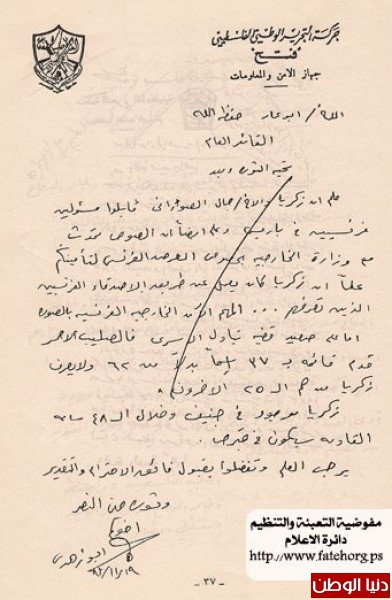 حركة التحرير الوطني الفلسطيني
"فتح"
جهاز الأمن والمعلومات
الاخ / ابو عمار حفظه الله
القائد العام
تحية الثورة وبعد
علم ان زكريا والاخ / جمال الصوراني قابلوا مسئولين
فرنسيين في باريس وعلم ايضاً ان الصوص تحدث
مع وزارة الخارجية بخصوص العرض الفرنسي لتأمينكم
علماً ان زكريا كان يعمل عن طريق الاصدقاء الفرنسيين
الذين تعرفهم ... المهم الآن الخارجية الفرنسية بالصورة
اما على صعيد قضية تبادل الأسرى فالصليب الاحمر
قدم قائمة بـ ٣٧ إسماً بدلاً من ٦٢ ولا يعرف
زكريا من هم الـ ٢٥ الاخرون .
زكريا موجود في جنيف وخلال الـ ٤٨ ساعة
القادمة سيكون في قبرص .
يرجى العلم وتفضلوا بقبول فائق الاحترام والتقدير
وثورة حتى النصر
اخوكم
ابو زهدي
٨٣/١١/١٩
- ٣٧ -
مفوضية التعبئة والتنظيم
دائرة الاعلام
http://www.fatehorg.ps
دنيا الوطن